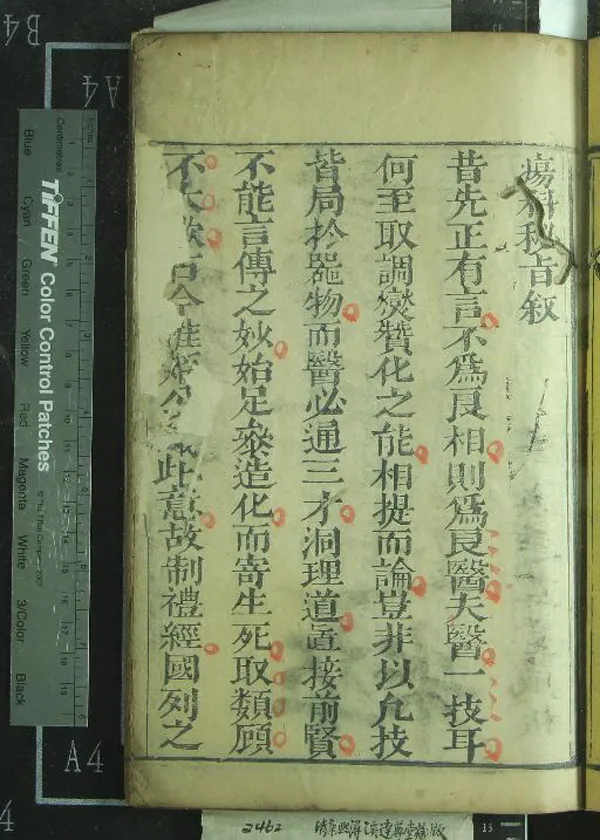 瘍科秘旨敘
昔先正有言不爲良相則爲良醫夫醫一技耳
何至取調燮贊化之能相提而論豈非以凢技
皆局扵噐物而醫必通三才洞理道置接前賢
不能言傳之妙始足叅造化而寄生死取類顧
不大歟古今惟姬公此意故制禮經國列之
B4
A4
A4
4
Centimetres
TIFFEN Color Control Patches
© The Tiffen Company, 2007
Blue
Cyan
Green
Yellow
Red
Magenta
White
3/Color
Black
2462
13